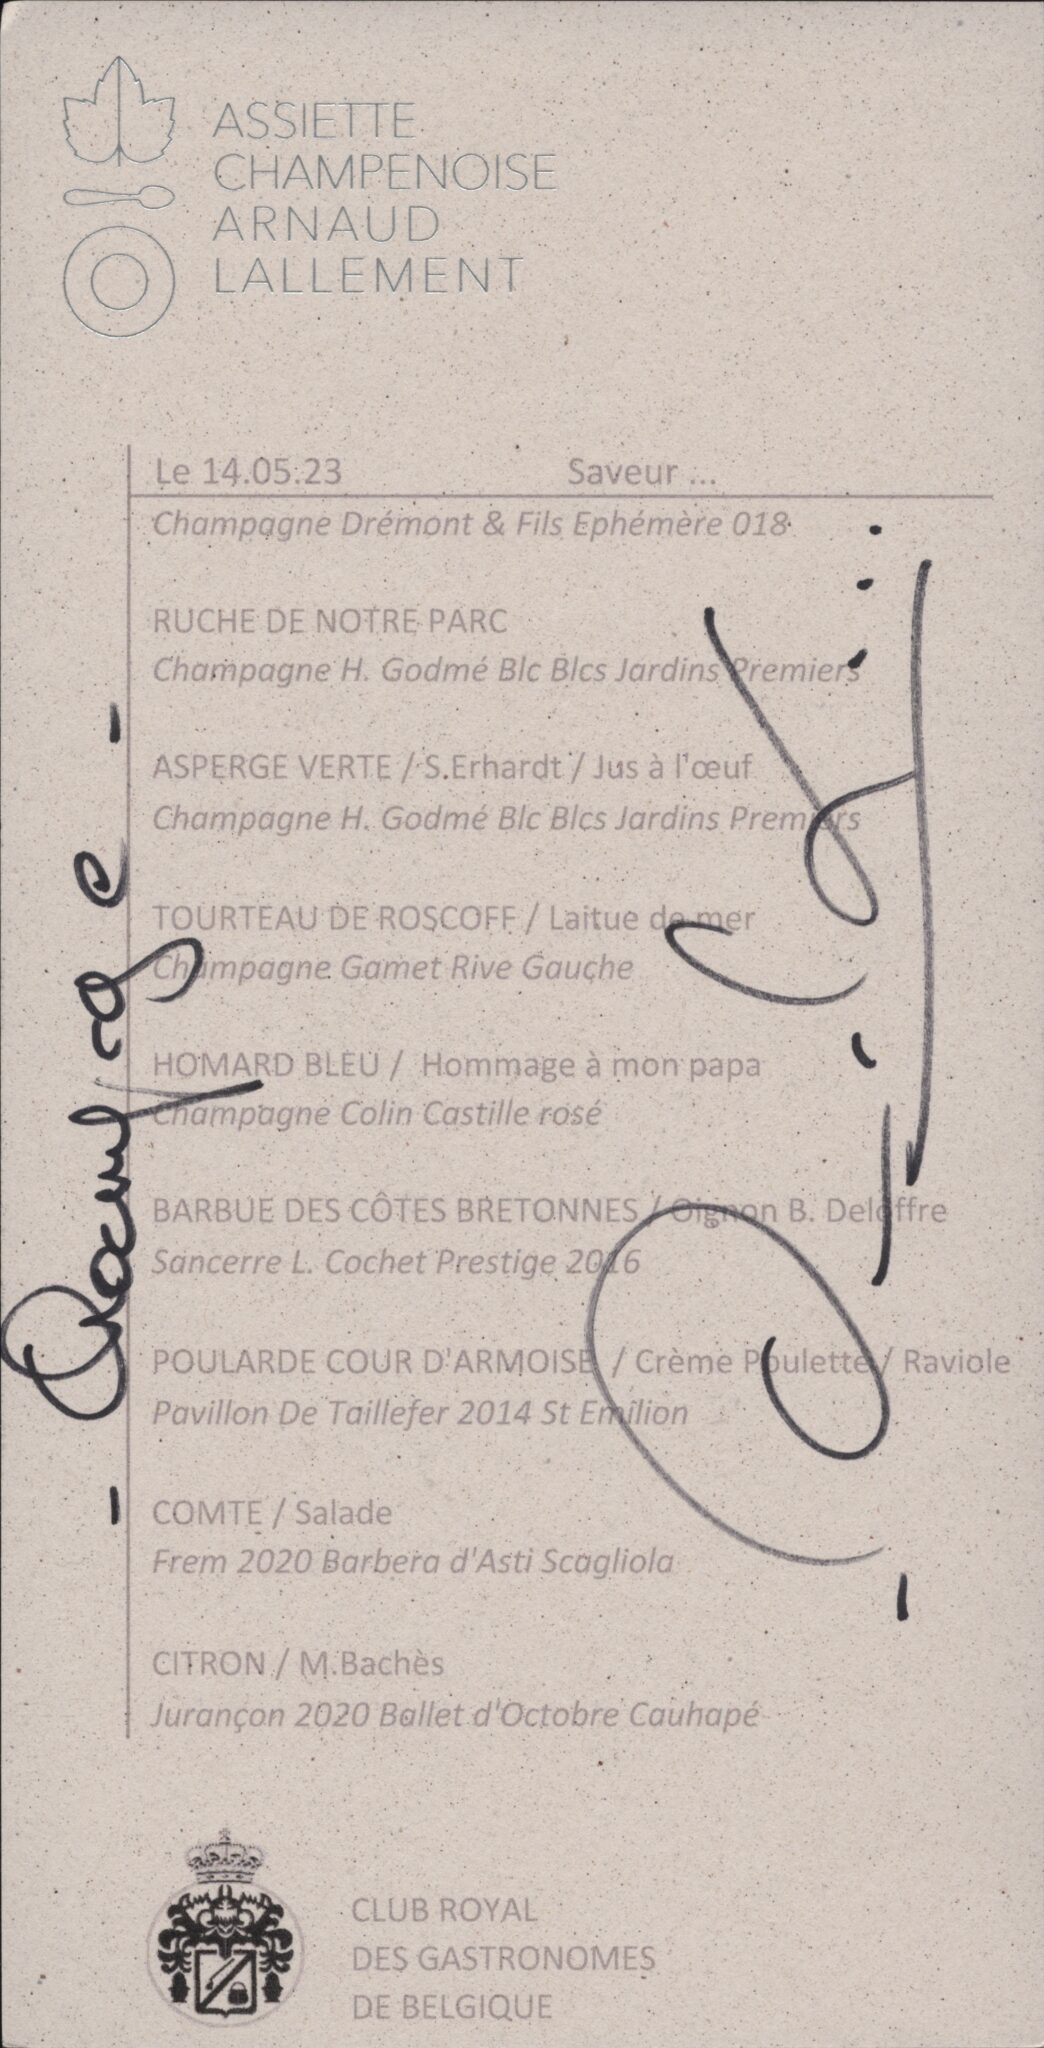 ASSIETTE
CHAMPENOISE
ARNAUD
LALLEMENT
Le 14.05.23 Saveur ...
Champagne Drémont & Fils Ephémère 018
RUCHE DE NOTRE PARC
Champagne H. Godmé Blc Blcs Jardins Premiers
ASPERGE VERTE / S.Erhardt / Jus à l'œuf
Champagne H. Godmé Blc Blcs Jardins Premiers
TOURTEAU DE ROSCOFF / Laitue de mer
Champagne Gamet Rive Gauche
HOMARD BLEU / Hommage à mon papa
Champagne Colin Castille rosé
BARBUE DES CÔTES BRETONNES / Oignon B. Deloffre
Sancerre L. Cochet Prestige 2016
POULARDE COUR D'ARMOISE / Crème Poulette / Raviole
Pavillon De Taillefer 2014 St Emilion
COMTE / Salade
Frem 2020 Barbera d'Asti Scagliola
CITRON / M.Bachès
Jurançon 2020 Ballet d'Octobre Cauhapé
CLUB ROYAL
DES GASTRONOMES
DE BELGIQUE